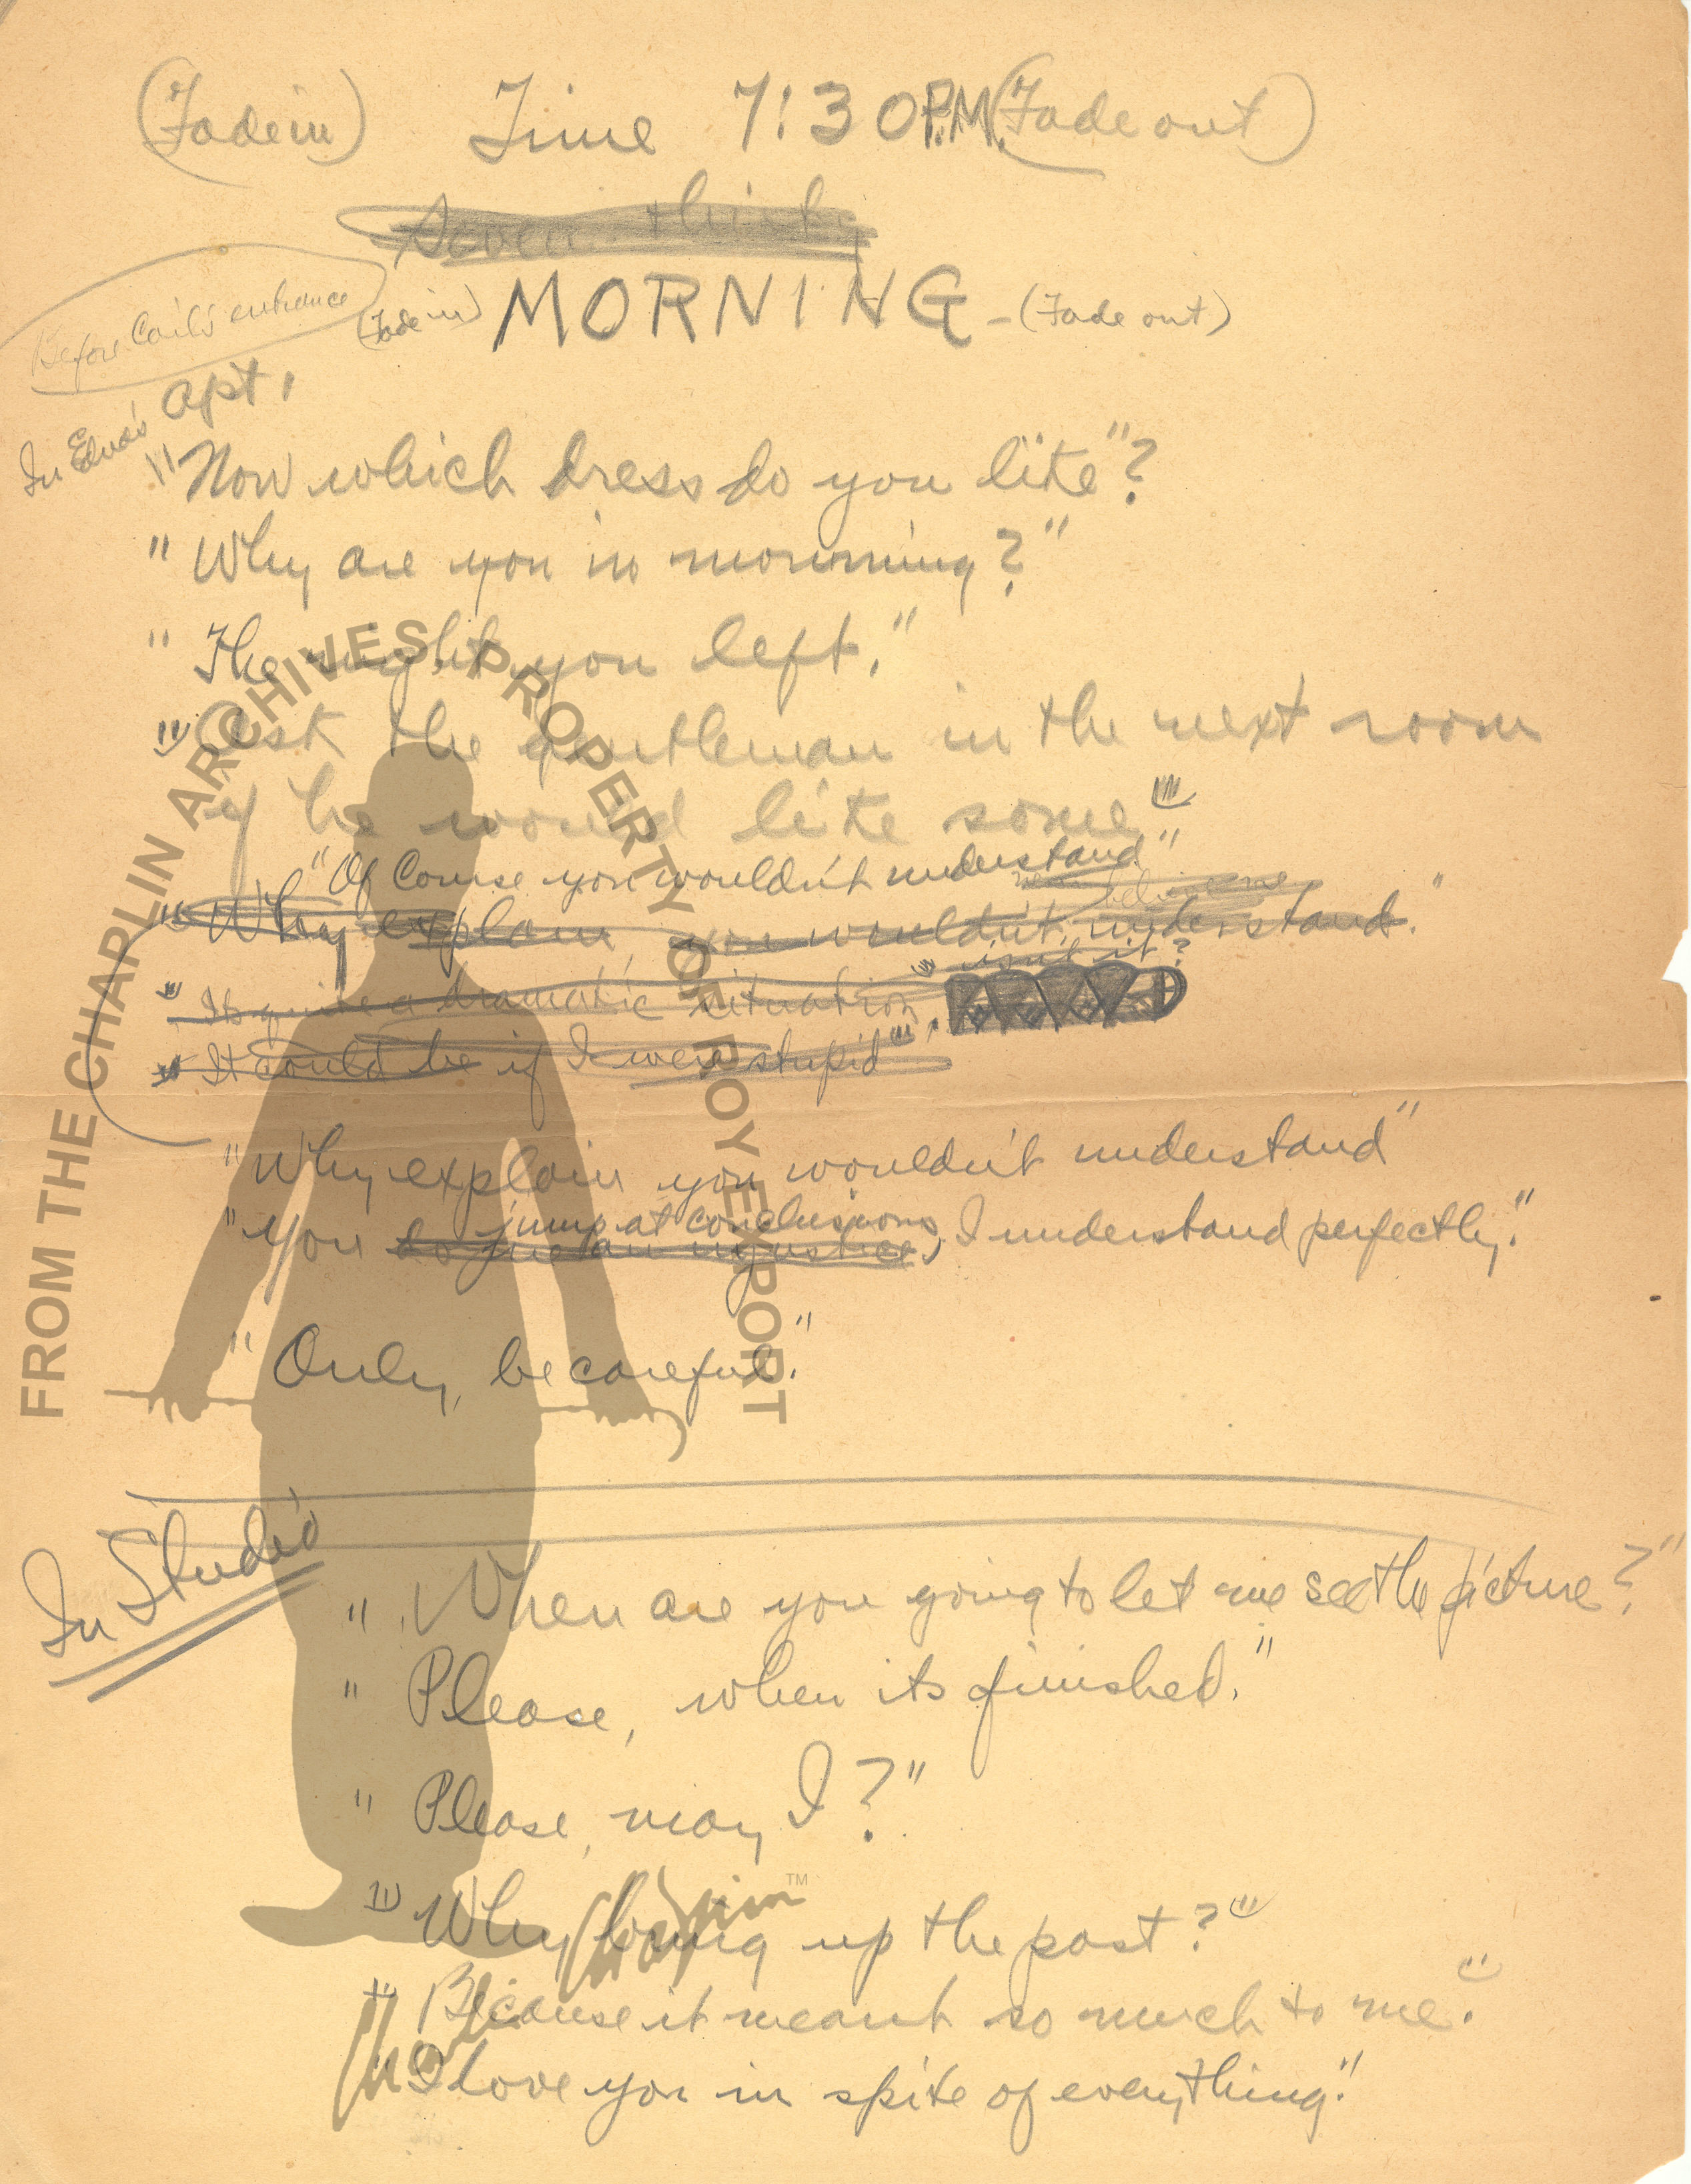 (Fade in) Time 7:30 P.M. (Fade out)
Seven thirty
Before Carl's entrance
(Fade in) MORNING - (Fade out)
In Edna's apt.
"Now which dress do you like"?
"Why are you in mourning?"
"The night you left."
"Ask the gentleman in the next room
if he would like some"
"Of Course you wouldn't understand"
believe me
"Why explain, you wouldn't understand."
isn't it?
"Its quite a dramatic situation".
"It could be if I were stupid".
"Why explain you wouldn't understand"
jump at conclusions
"You do me an injustice, I understand perfectly."
"Only, be careful."
In Studio
"When are you going to let me see the picture?"
"Please, when its finished."
"Please, may I?"
"Why bring up the past?"
"Because it meant so much to me."
"I love you in spite of everything."
FROM THE CHAPLIN ARCHIVES PROPERTY OF ROY EXPORT
Charlie Chaplin™